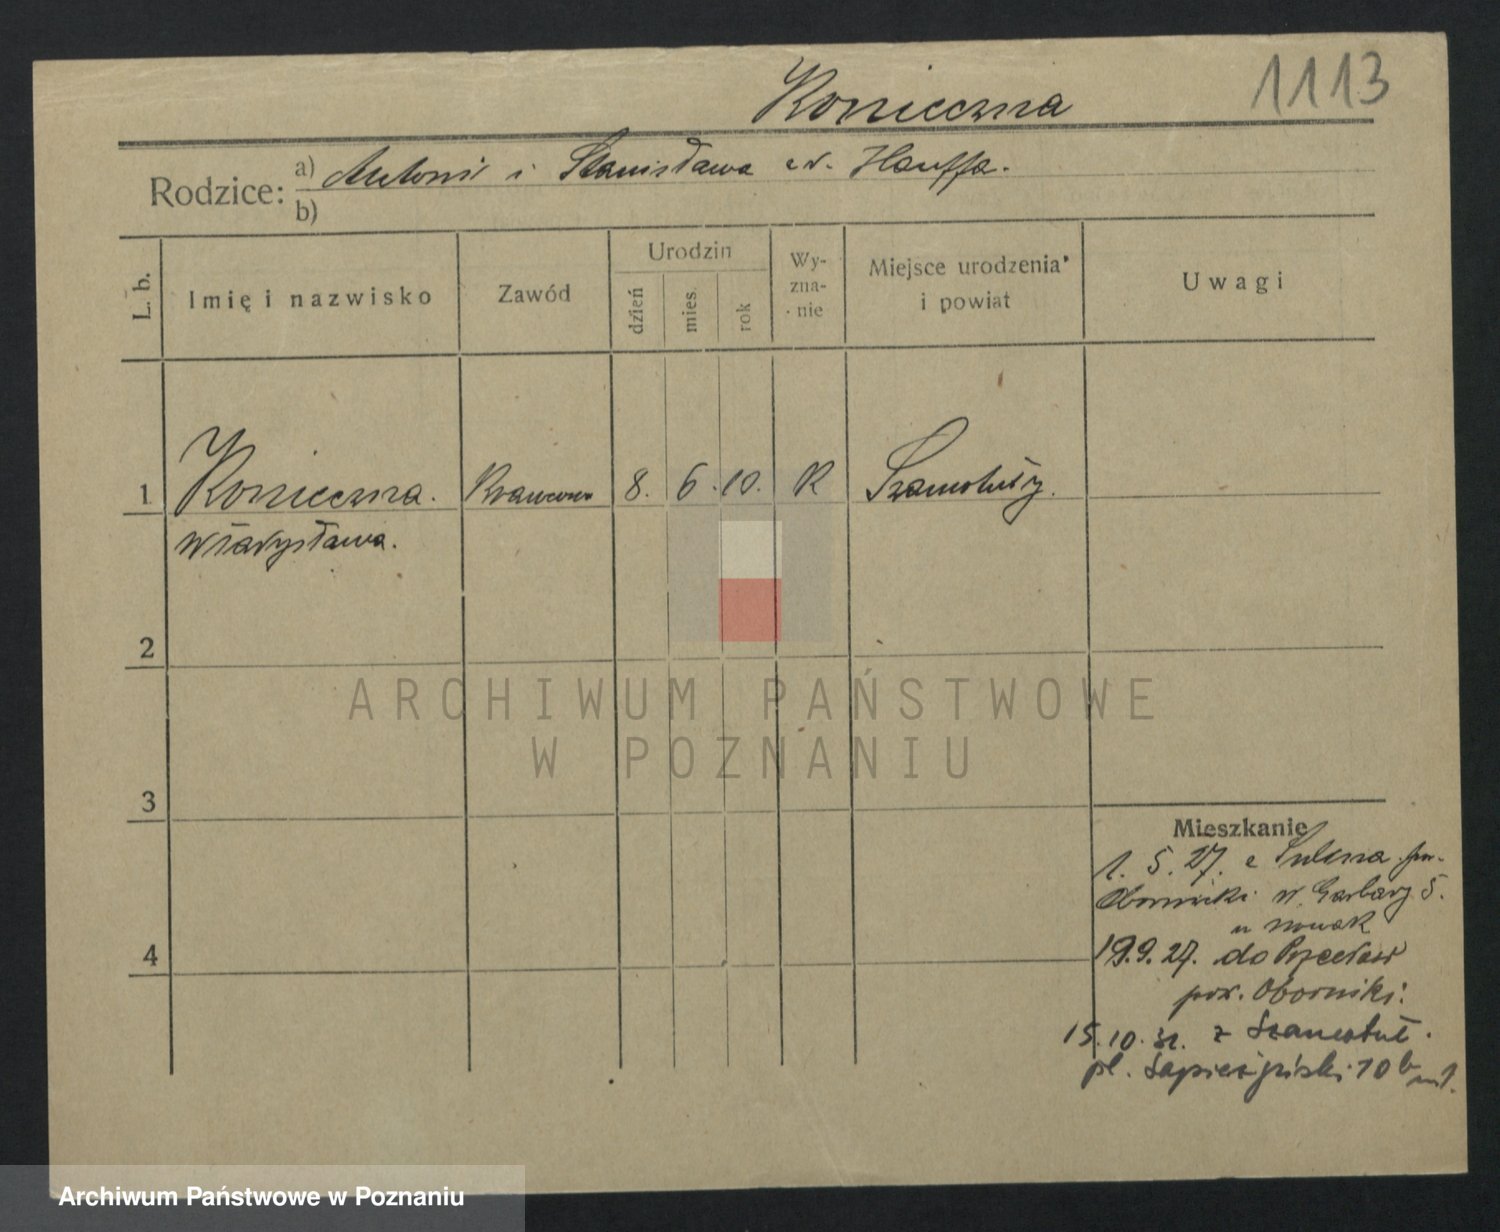 Konieczna 1113
Rodzice: a) Antoni i Stanisława z d. Hauffa.
b)
L. b. Imię i nazwisko Zawód Urodzin dzień mies. rok Wy-zna-nie Miejsce urodzenia i powiat Uwagi
1 Konieczna. Krawcowa 8. 6. 10. R Szamotuły.
Władysława.
2
ARCHIWUM PAŃSTWOWE
W POZNANIU
3
Mieszkanie
1. 5. 27. z
Oborniki w. Garbary 5.
u Nowak
19.9.27. do Przecław
pow. Oborniki.
4
15.10.31. z Szamotuł.
pl. Sapieżyński 10 b m 1.
Archiwum Państwowe w Poznaniu